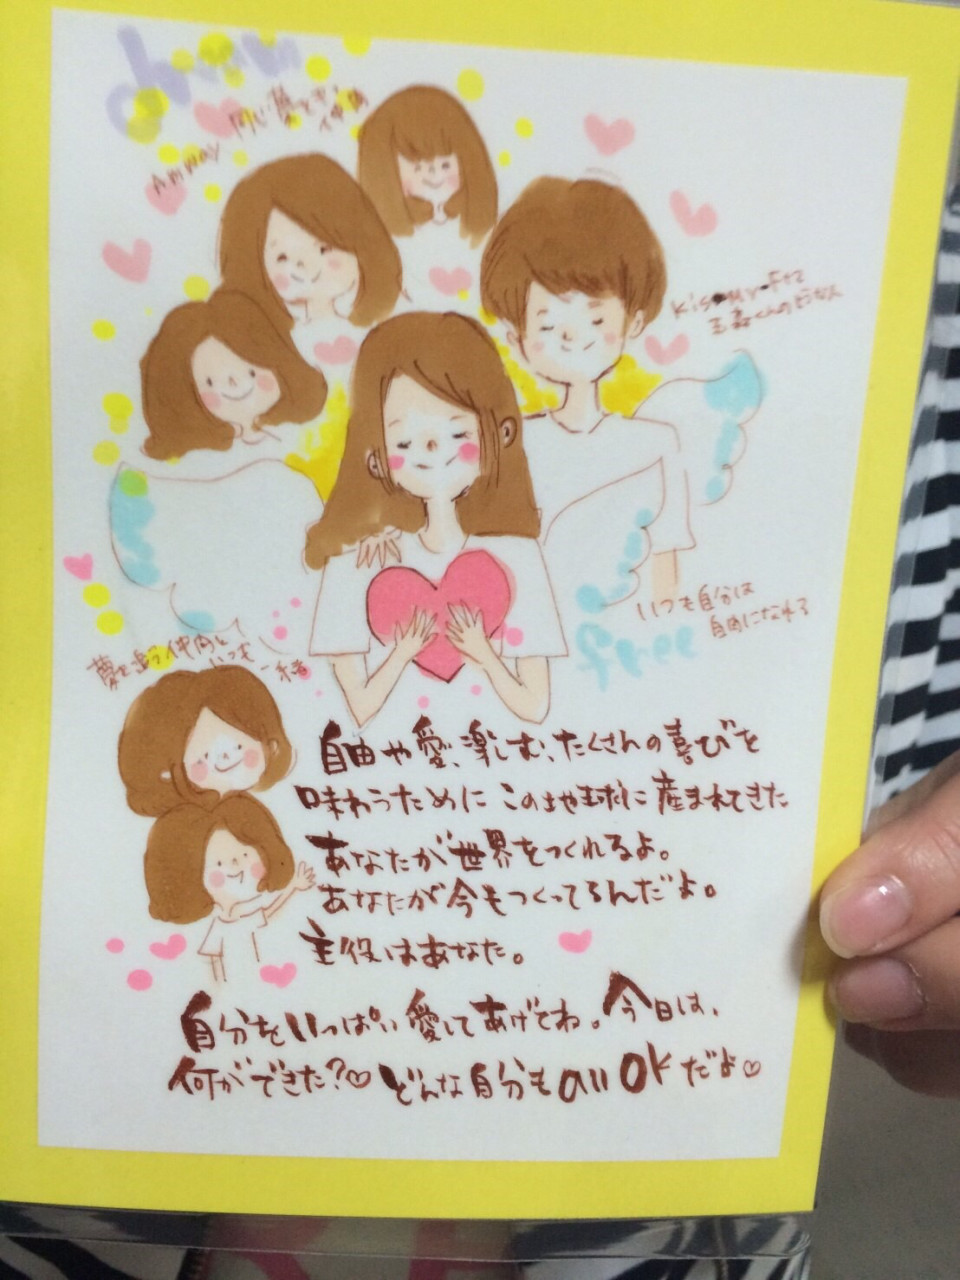 dream
Amway 同じ夢とぎ
仲間
Kis-My-Ft2
玉森くんのような人
いつも自分は
自由になれる
free
夢を追う仲間と
いつも一緒
自由や愛、楽しむ、たくさんの喜びを
味わうために この地球に産まれてきた
あなたが世界をつくれるよ。
あなたが今もつくってるんだよ。
主役はあなた。
自分をいっぱい愛してあげてね。今日は、
何ができた?♡ どんな自分も all OKだよ♡